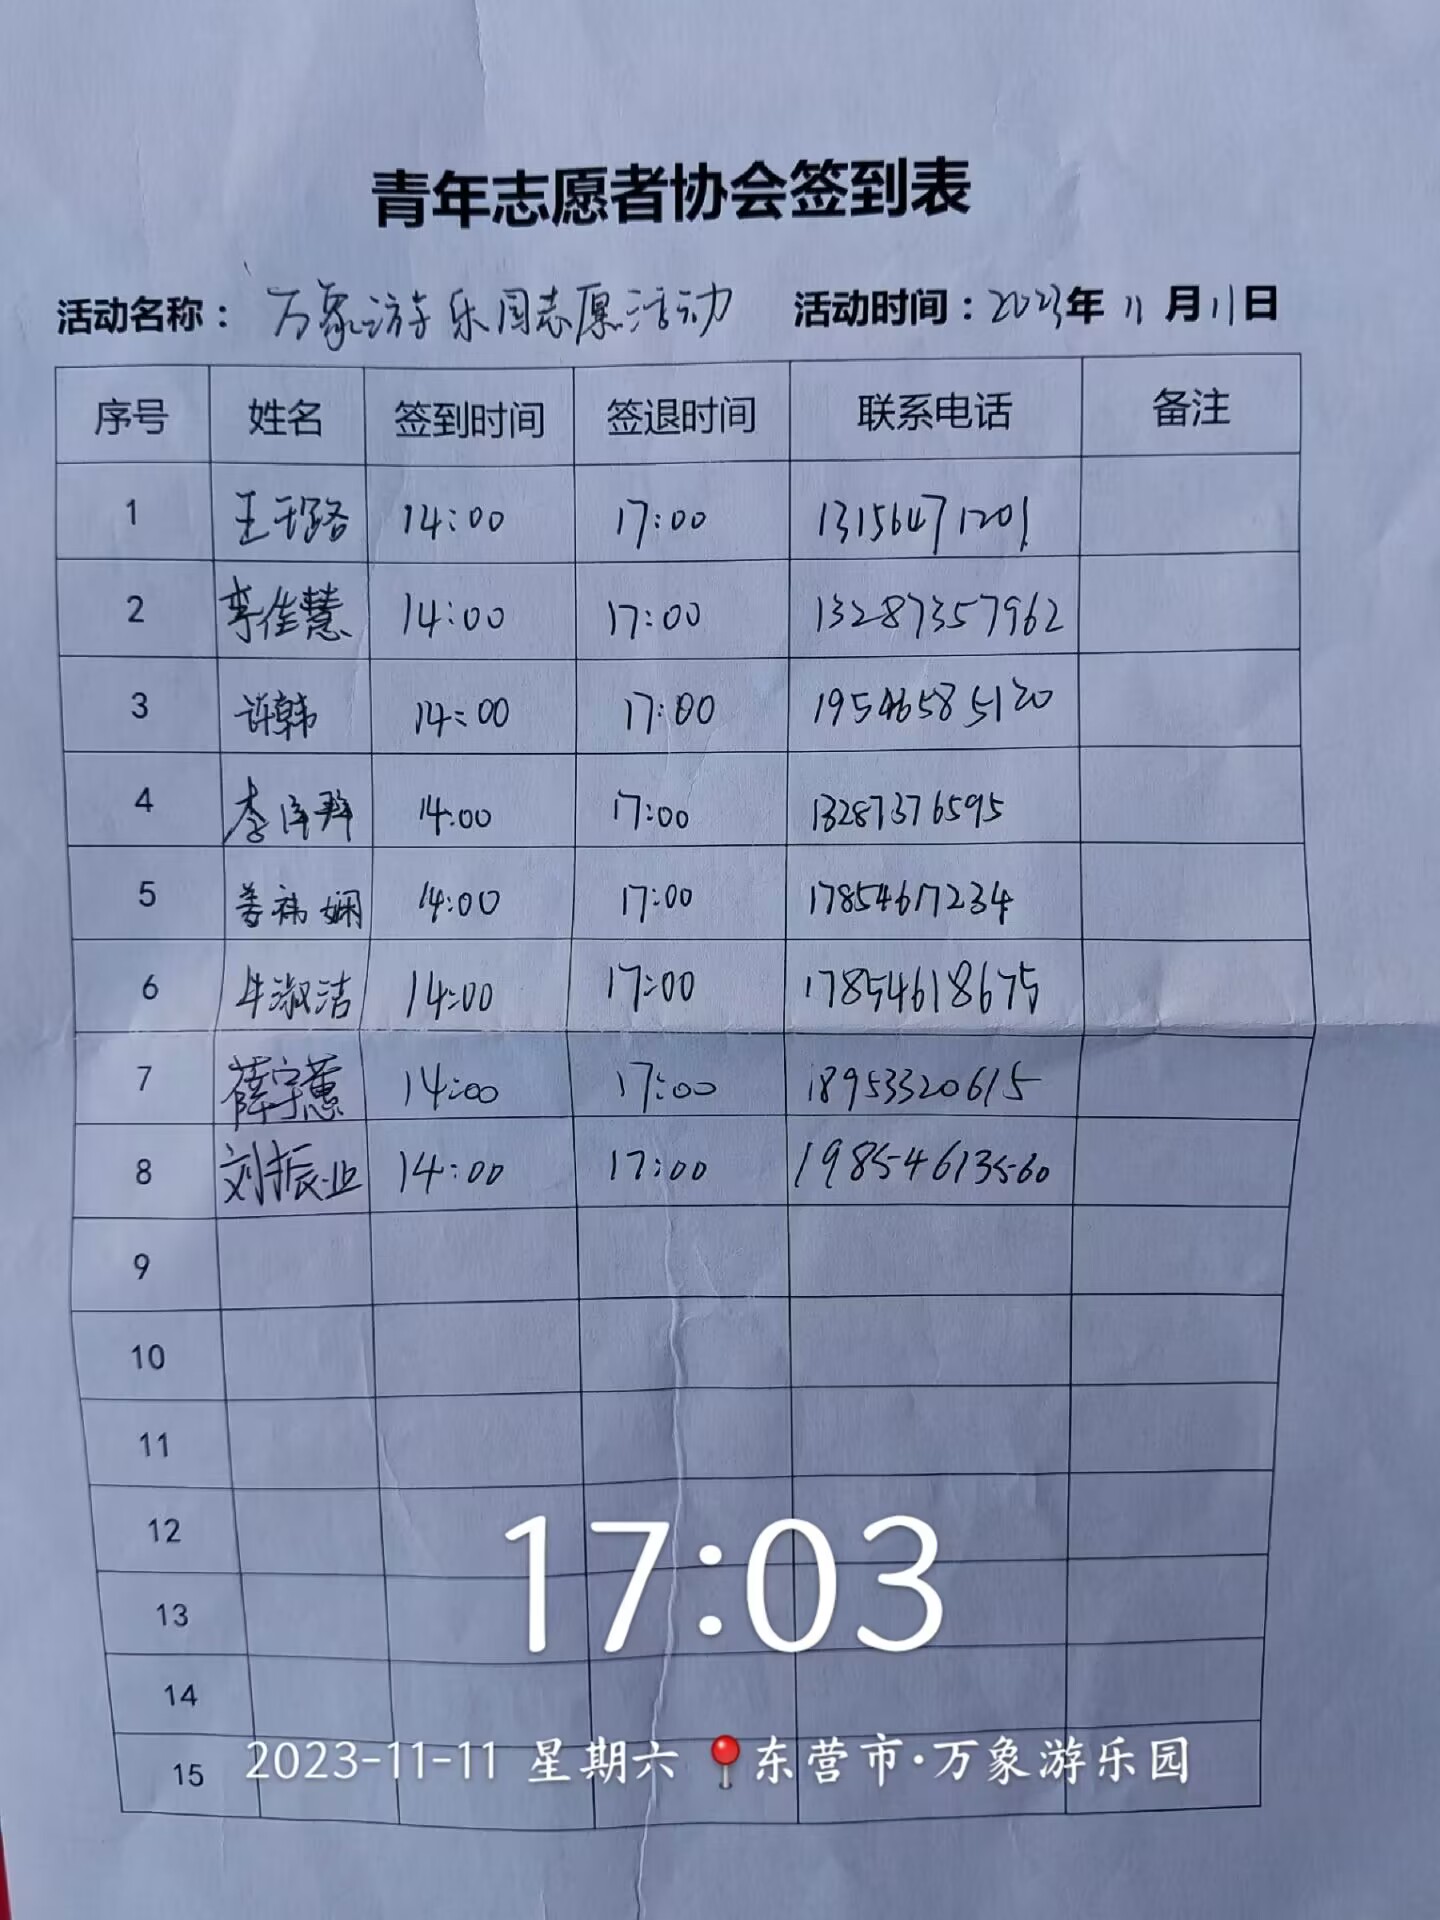 青年志愿者协会签到表
活动名称： 万象游乐园志愿活动 活动时间：2023年 11 月 11 日
序号 姓名 签到时间 签退时间 联系电话 备注
1 王 14:00 17:00 13156471201
2 李佳慧 14:00 17:00 13287357962
3 许韩 14:00 17:00 19546585120
4 李 14:00 17:00 13287376595
5 姜祎娴 14:00 17:00 17854617234
6 牛淑洁 14:00 17:00 17854618675
7 薛宇蕙 14:00 17:00 18953320615
8 刘振业 14:00 17:00 19854613560
9
10
11
12
13
14
15
17:03
2023-11-11 星期六 东营市·万象游乐园